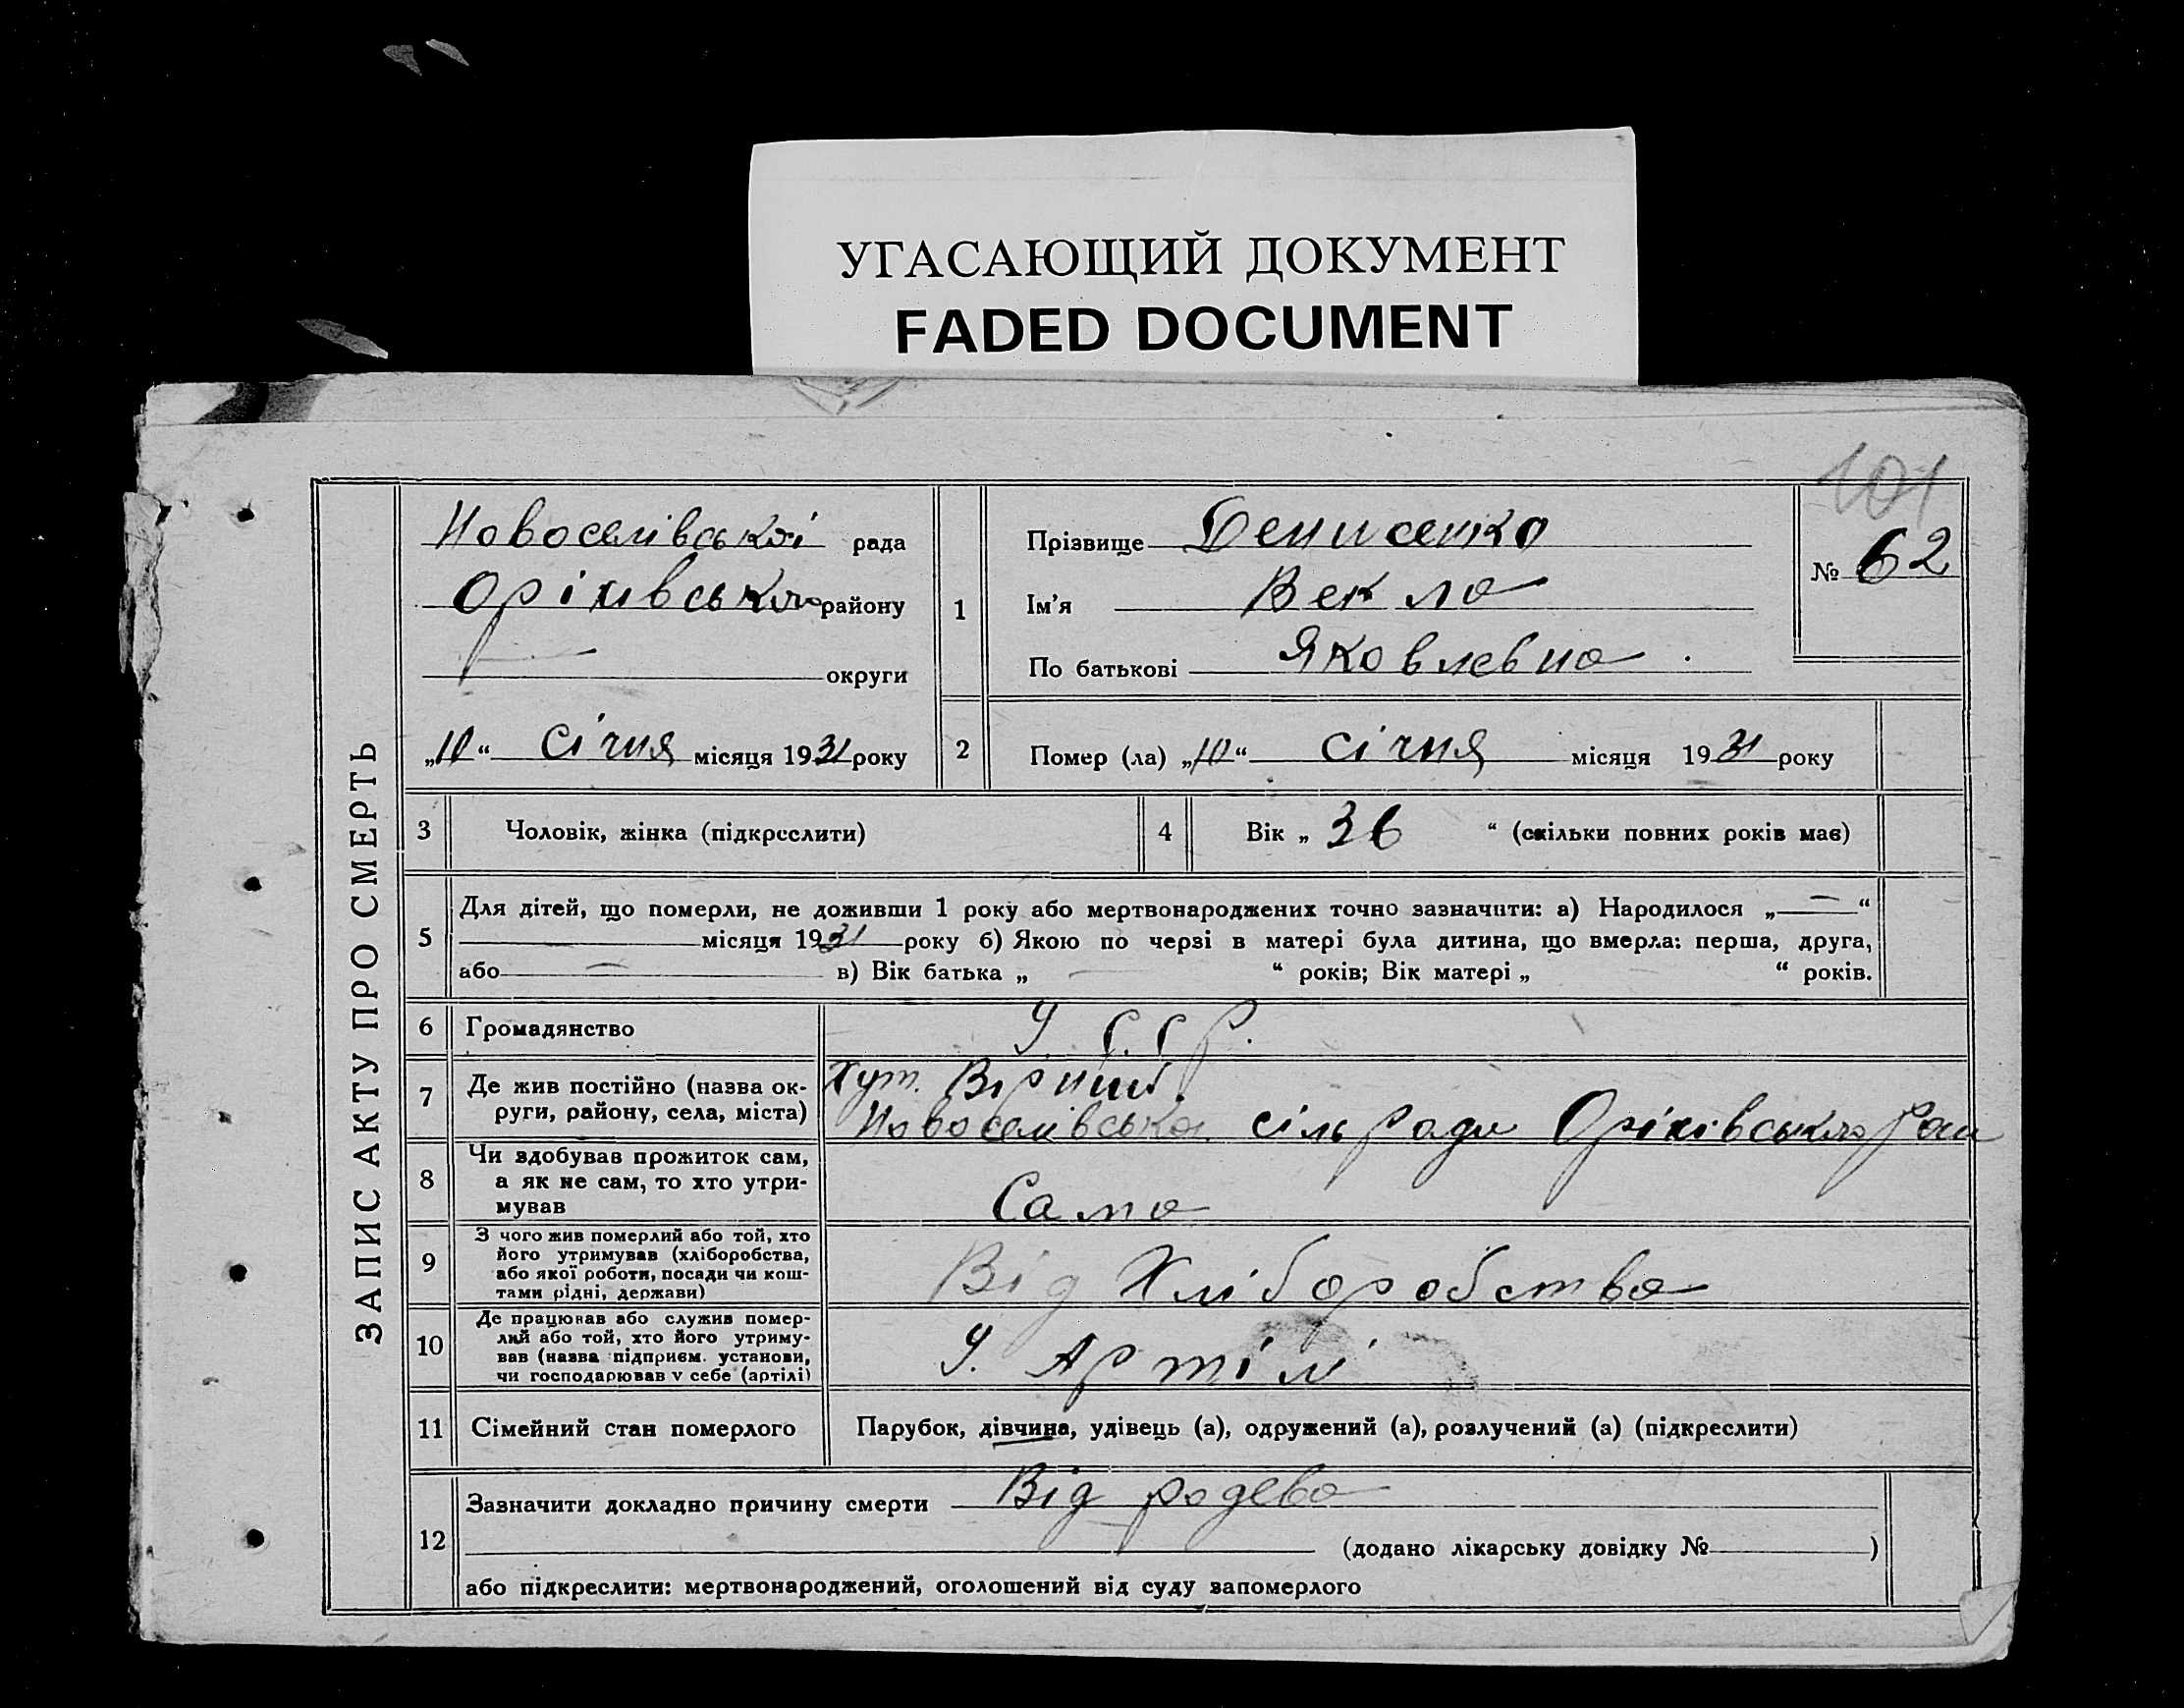 УГАСАЮЩИЙ ДОКУМЕНТ
FADED DOCUMENT
101
ЗАПИС АКТУ ПРО СМЕРТЬ
Новоселівської рада
Оріхівського району
округи
„10“ Січня місяця 1931 року
1
Прізвище Денисенко
Ім'я Векла
По батькові Яковлевна
№ 62
2 Помер (ла) „10“ Січня місяця 1931 року
3 Чоловік, жінка (підкреслити)
4 Вік „36“ (скільки повних років має)
5
Для дітей, що померли, не доживши 1 року або мертвонароджених точно зазначити: а) Народилося „—“
місяця 1931 року б) Якою по черзі в матері була дитина, що вмерла: перша, друга,
або — в) Вік батька „ “ років; Вік матері „ “ років.
6 Громадянство У.С.С.Р.
7 Де жив постійно (назва ок-
руги, району, села, міста)
Хут. Вірний
Новоселівська сільради Оріхівського рай
8 Чи здобував прожиток сам,
а як не сам, то хто утри-
мував
Сама
9 З чого жив померлий або той, хто
його утримував (хліборобства,
або якої роботи, посади чи кош-
тами рідні, держави)
Від Хліборобства
10 Де працював або служив помер-
лий або той, хто його утриму-
вав (назва підприєм. установи,
чи господарював у себе (артілі)
У. Артілі
11 Сімейний стан померлого Парубок, дівчина, удівець (а), одружений (а), розлучений (а) (підкреслити)
12
Зазначити докладно причину смерти Від
(додано лікарську довідку № )
або підкреслити: мертвонароджений, оголошений від суду запомерлого